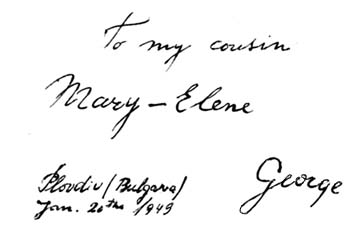 To my cousin
Mary-Elene
George
Plovdiv (Bulgaria)
Jan. 20ths 1949